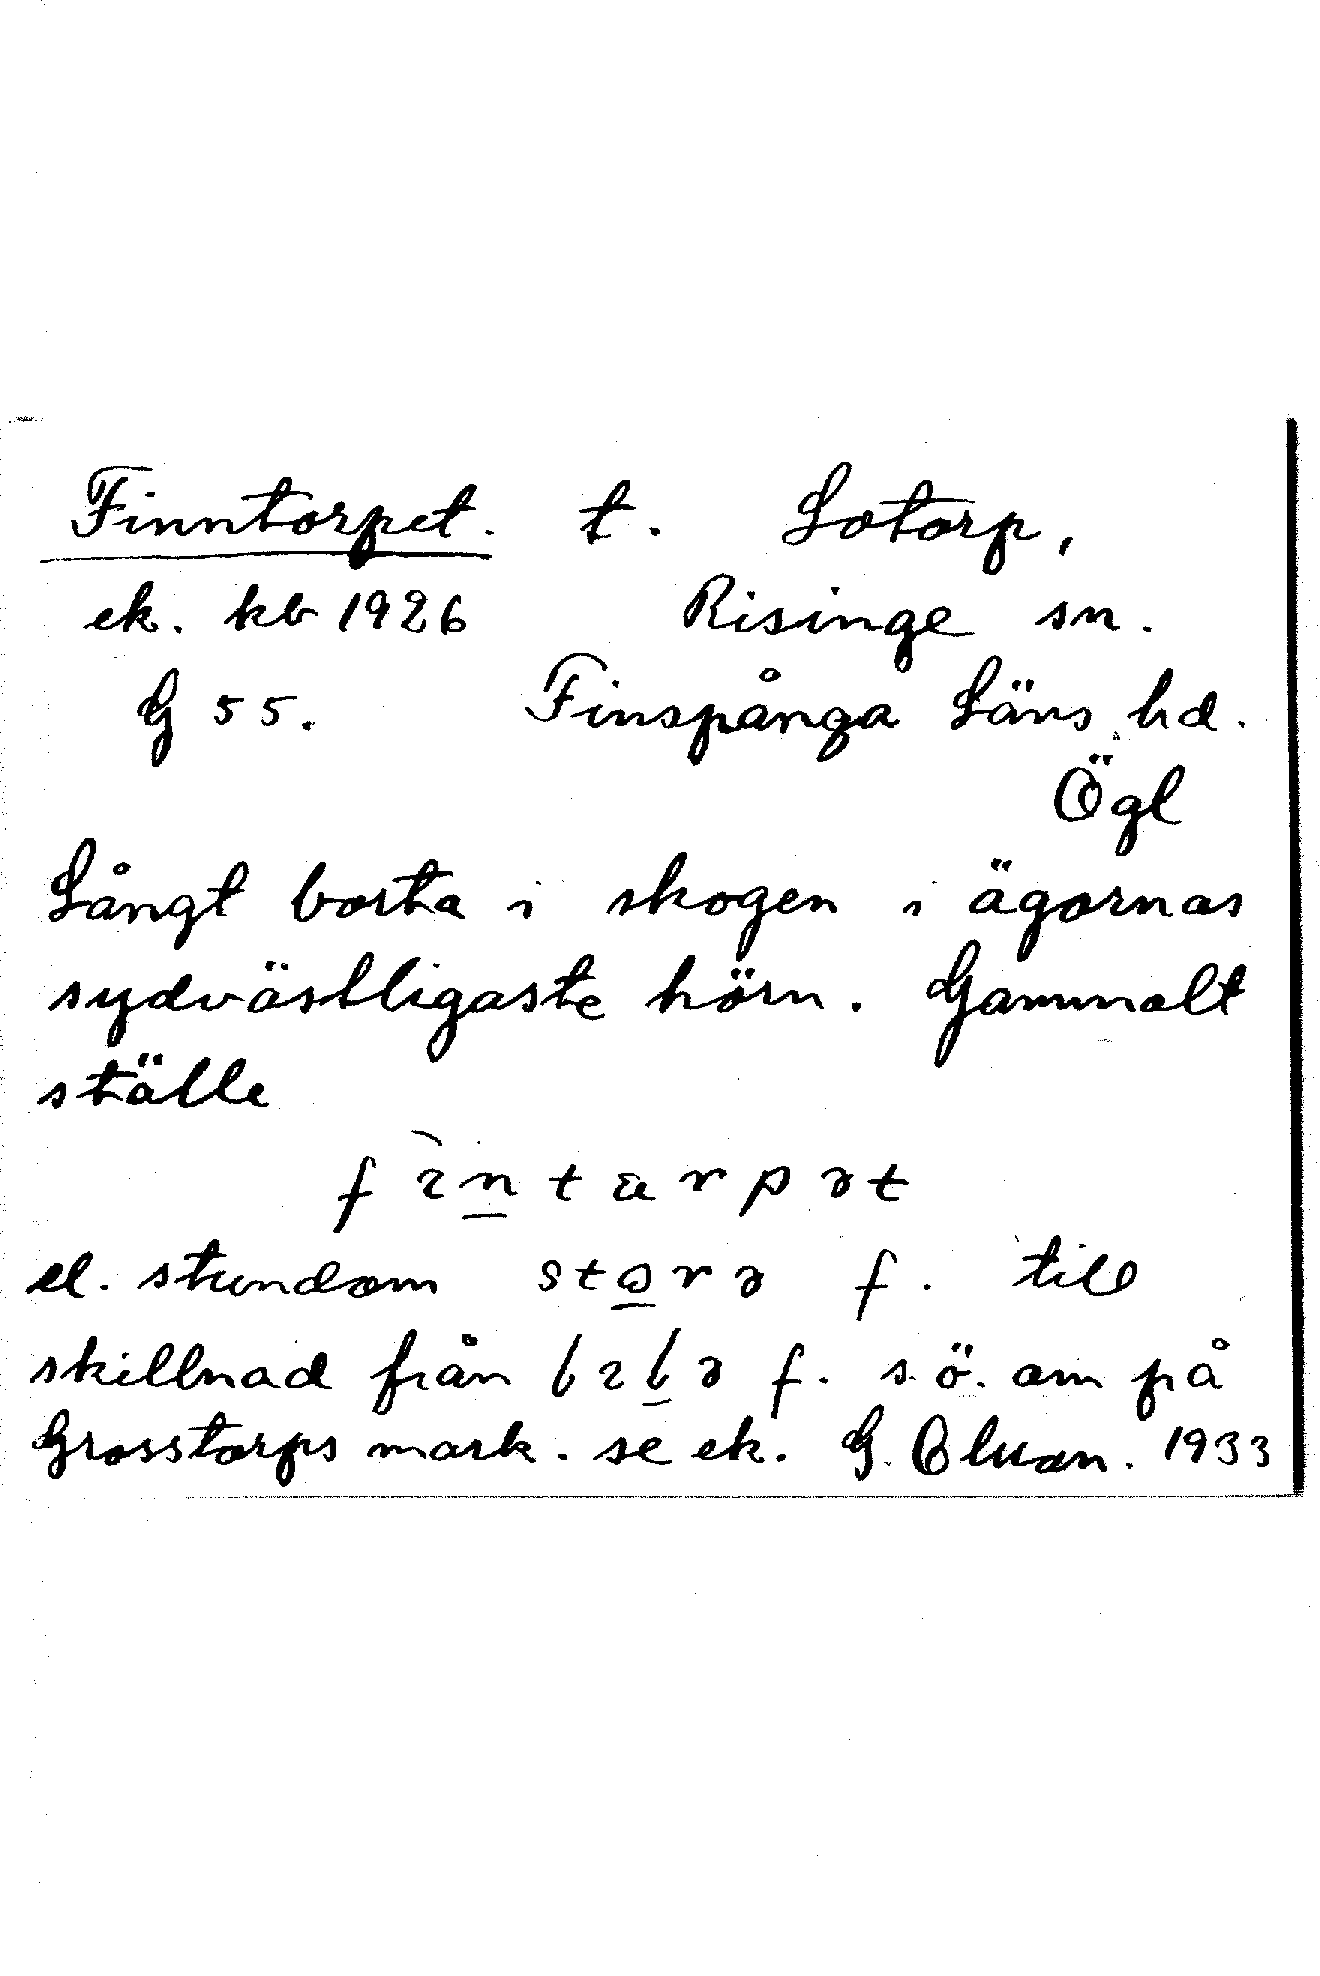 Finntorpet. t. Lotorp,
ek. kb 1926 Risinge sn.
G 55. Finspånga Läns hd.
Ögl
Långt borta i skogen i ägornas
sydvästligaste hörn. Gammalt
ställe
fìntarpət
el. stundom storə f. till
skillnad från lɩlə f. s. ö. om på
Grosstorps mark. se ek. G. 1933